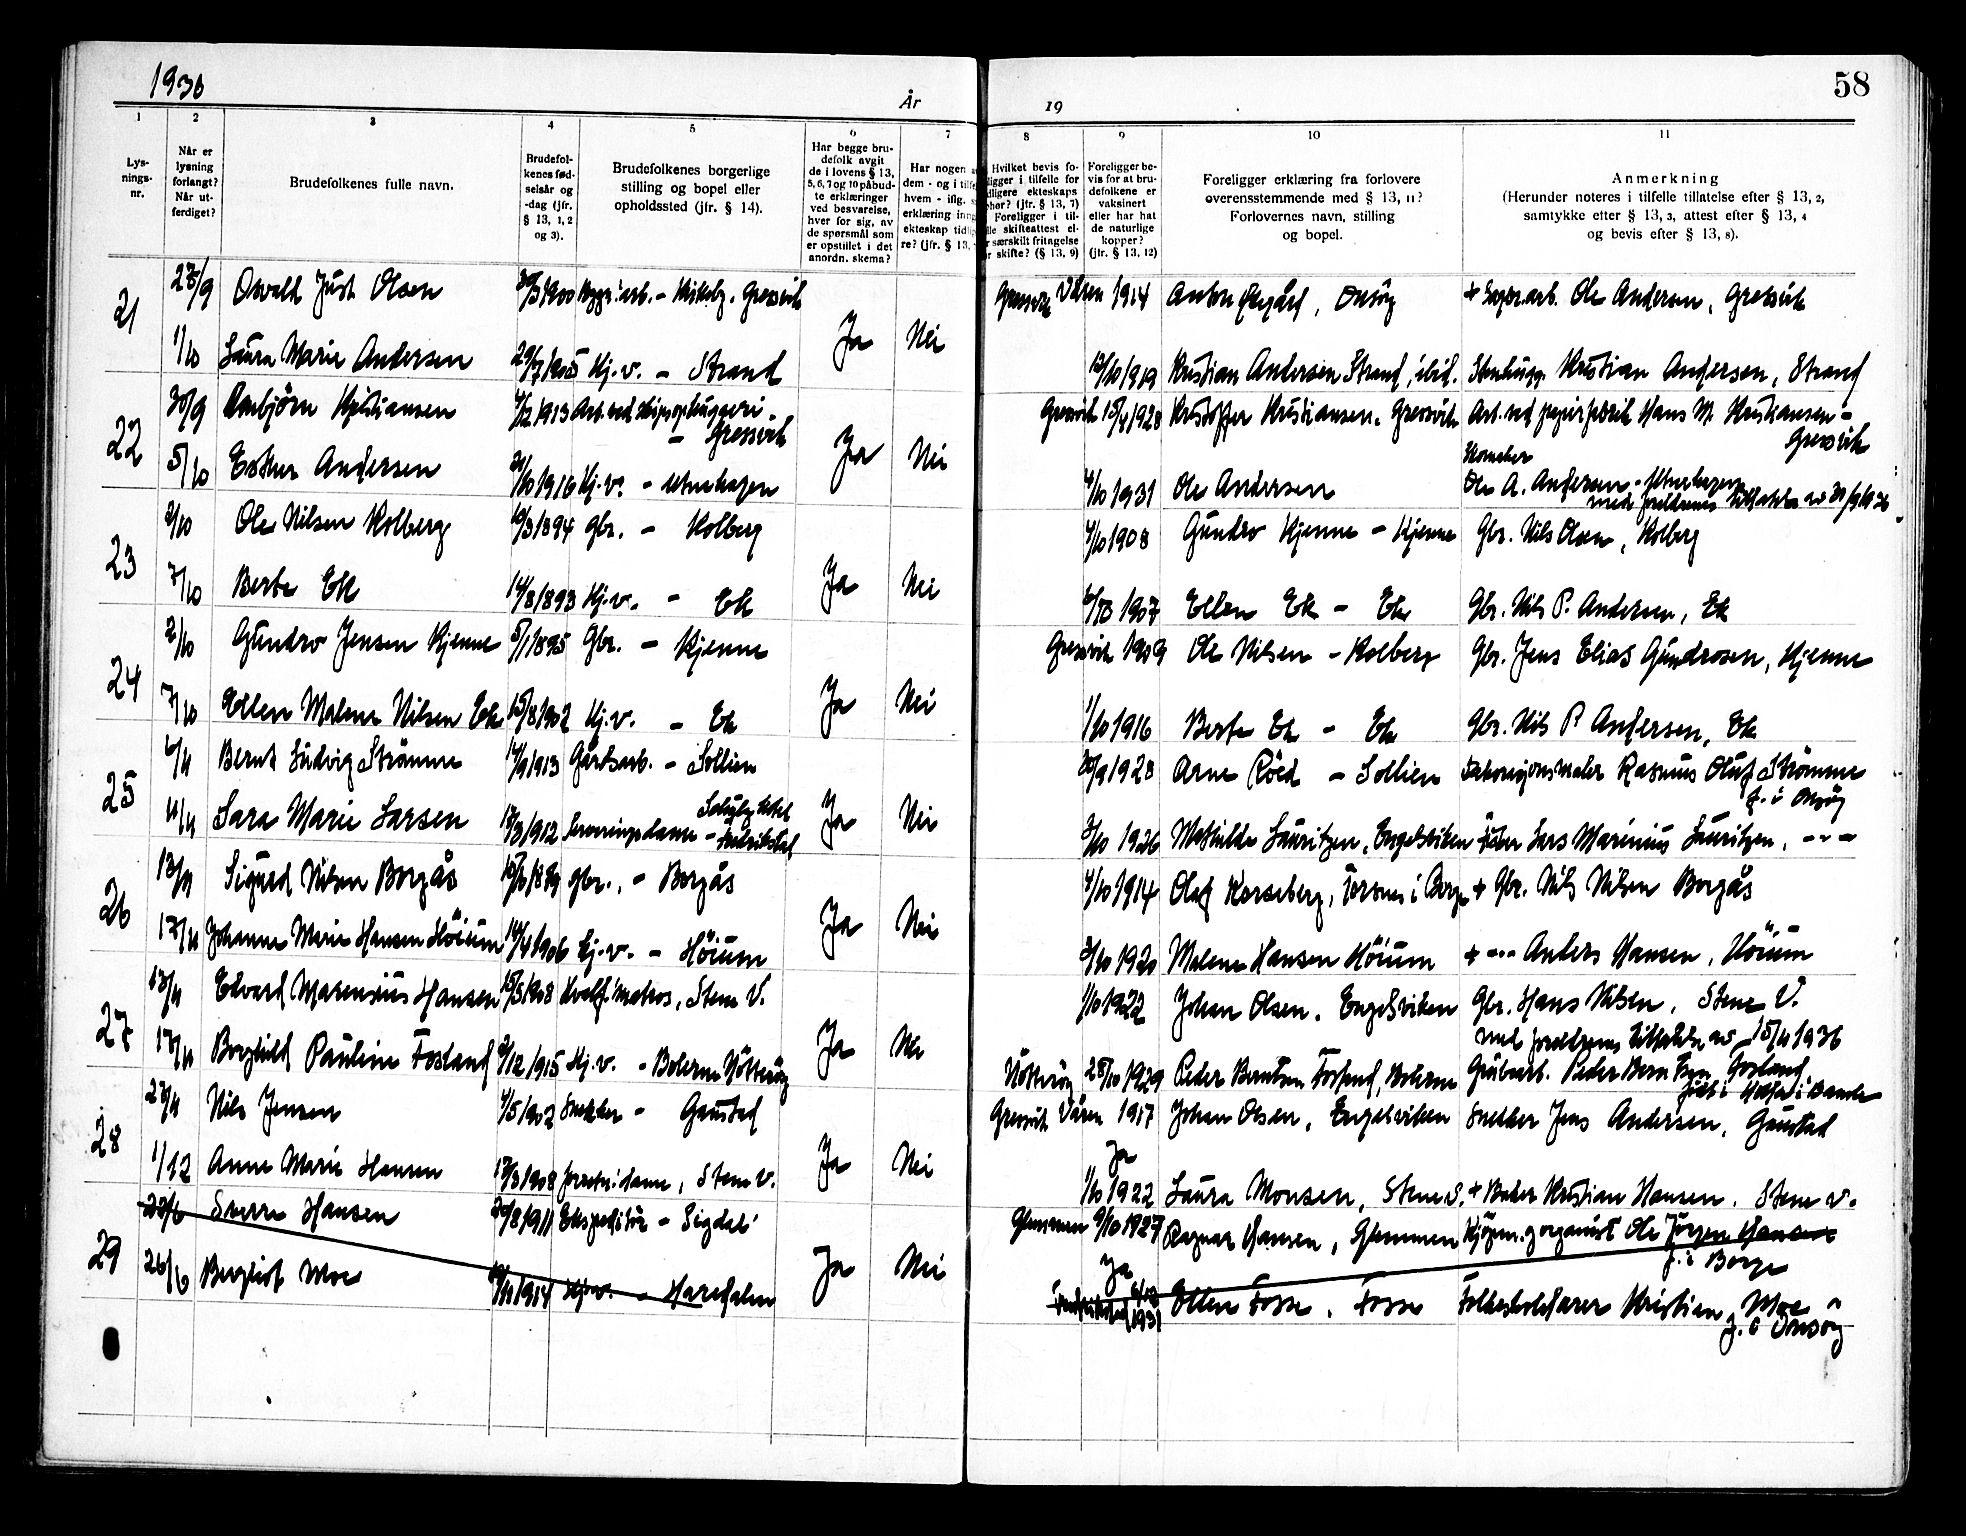 1936
År
19
58
1
2
3
4
5
6
7
8
9
10
11
Lys-
nings-
nr.
Når er
lysning
forlangt?
Når ut-
ferdiget?
Brudefolkenes fulle navn.
Brudefol-
kenes fød-
selsår og
-dag (jfr.
§ 13, 1, 2
og 3).
Brudefolkenes borgerlige
stilling og bopel eller
opholdssted (jfr. § 14).
Har begge bru-
defolk avgit
de i lovens § 13,
5, 6, 7 og 10 påbud-
te erklæringer
ved besvarelse,
hver for sig, av
de spørsmål som
er opstillet i det
anordn. skema?
Har nogen a
dem - og i tilfe
hvem - iflg.
erklæring inng
ekteskap tidlig
re? (jfr. § 13,
Hvilket bevis fo-
ligger i tilfelle for
dligere ekteskaps
phør? (jfr. § 13, 7)
Foreligger i til-
lle skifteattest el-
r særskilt fritagelse
r skifte? (§ 13, 9)
Foreligger be-
vis for at bru-
defolkene er
vaksinert
eller har hat
de naturlige
kopper?
(jfr. § 13, 12)
Foreligger erklæring fra forlovere
overensstemmende med § 13, 11?
Forlovernes navn, stilling
og bopel.
Anmerkning
(Herunder noteres i tilfelle tillatelse efter § 13, 2,
samtykke efter § 13, 3, attest efter § 13, 4
og bevis efter § 13, 8).
21
Osvald Just Olsen Gressvik
Gressvik Våren 1914 Anton , Onsøy + Ole Andersen, Gressvik
1/10 Laura Marie Andersen 29/7 1905 Hj.v. - Strand Ja Nei
1919 Kristian Andersen Strand, ibid. Kristian Andersen, Strand
22
30/9 Kristiansen 1913 Arb. ved skipsophuggeri -
- Gressvik
Gressvik 1928 Kristoffer Kristiansen - Gressvik Arb. ved papirfabrik Hans M. Kristiansen -
Gressvik
5/10 Esther Andersen 1916 Hj.v. - Ja Nei
1931 Ole Andersen Ole A. Andersen -
med foreldrenes tillatelse av 30/9 1936
23
2/10 Ole Nilsen Kolberg 1894 Gbr. - Kolberg
1908 Gundro Kjenne - Kjenne Gbr. Nils Olsen, Kolberg
7/10 Berte Ek 14/8 1893 Hj.v. - Ek Ja Nei
1907 Ellen Ek - Ek Gbr. Nils P. Andersen, Ek
24
2/10 Gundro Jensen Kjenne 5/1 1895 Gbr. - Kjenne
Gressvik 1909 Ole Nilsen - Kolberg Gbr. Jens Elias Gundrosen, Kjenne
7/10 Ellen Malene Nilsen Ek 15/8 1902 Hj.v. - Ek Ja Nei
1/10 1916 Berte Ek - Ek Gbr. Nils P. Andersen, Ek
25
Bernt Ludvig Strømme 1913 Gårdsarb. - Sollien
1928 Arne Röed - Sollien Dekorasjonsmaler Rasmus Oluf Strømme
f. i Onsøy
Sara Marie Larsen 1912 Serveringsdame - Hotel
Fredrikstad
Ja Nei
1926 Mathilde Lauritzen, Engelsviken Fisker Lars Marinius Lauritzen, - " -
26
Sigurd Nilsen Borgås 1889 Gbr. - Borgås
1914 Olaf Korseberg, Torsnes i Borge + Gbr. Nils Nilsen Borgås
Johanne Marie Hansen Höium 14/4 1906 Hj.v. - Höium Ja Nei
1920 Malene Hansen Höium + - " - Anders Hansen, Höium
27
Edvard Marenius Hansen 15/5 1908 Hvalf. Matros, Stene V.
1/10 1922 Johan Olsen, Engelsviken Gbr. Hans Nilsen, Stene V.
Borghild Pauline Fosland 1915 Hj.v. - Bolerne Nötteröy Ja Nei
med foreldrenes tillatelse av 15/11 1936
Nötteröy 28/10 1929 Peder Berntsen Fosland, Bolerne Peder Berntsen Fosland
28
27/11 Nils Jensen 1902 Snekker - Gaustad
Gressvik Våren 1917 Johan Olsen, Engelsviken Snekker Jens Andersen, Gaustad
1/12 Anne Marie Hansen 1908 Stene V. Ja Nei
Ja
1/10 1922 Laura Monsen, Stene V. + Baker Kristian Hansen, Stene V.
29
Sverre Hansen 1911 Ekspeditör - Sigdal
Glemmen 9/10 1927 Ragnar Hansen, Glemmen Kjöpm. og organist Ole Jörgen Hansen
f. i Borge
26/6 Bergliot Moe 1914 Hj.v. - Haredalen Ja Nei
Ja
1931 Ellen Fosse, Fosse Folkeskolelærer Kristian Moe
f. i Onsøy